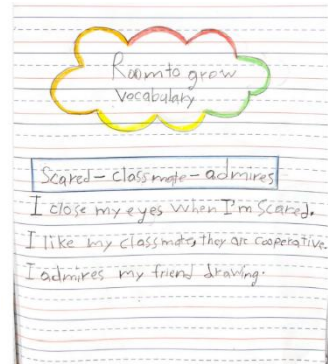 Room to grow
Vocabulary
Scared - classmate - admires
I close my eyes when I'm scared.
I like my classmate, they are cooperative.
I admires my friend drawing.